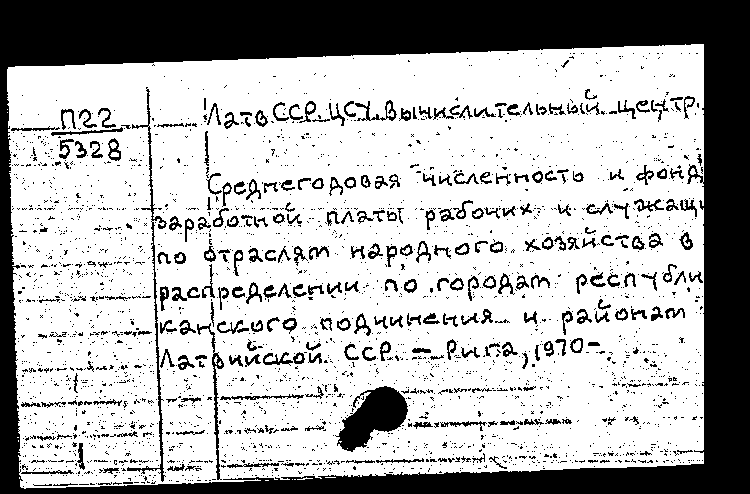 П22
5328
Латв ССР. ЦСУ. Вычислительный центр.
Среднегодовая численность и фонд
заработной платы рабочих и служащи
по отраслям народного хозяйства в
распределении по городам республи
канского подчинения и районам
Латвийской ССР. — Рига, 1970-